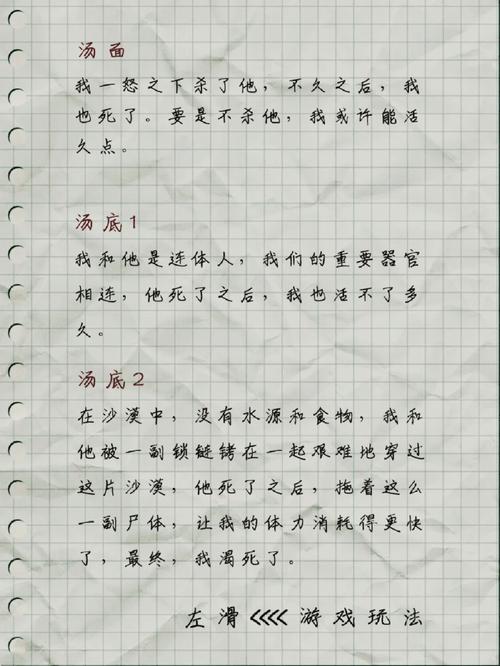 汤面
我一怒之下杀了他，不久之后，我
也死了。要是不杀他，我或许能活
久点。
汤底1
我和他是连体人，我们的重要器官
相连，他死了之后，我也活不了多
久。
汤底2
在沙漠中，没有水源和食物，我和
他被一副锁链铐在一起艰难地穿过
这片沙漠，他死了之后，拖着这么
一副尸体，让我的体力消耗得更快
了，最终，我渴死了。
左滑<<<<游戏玩法